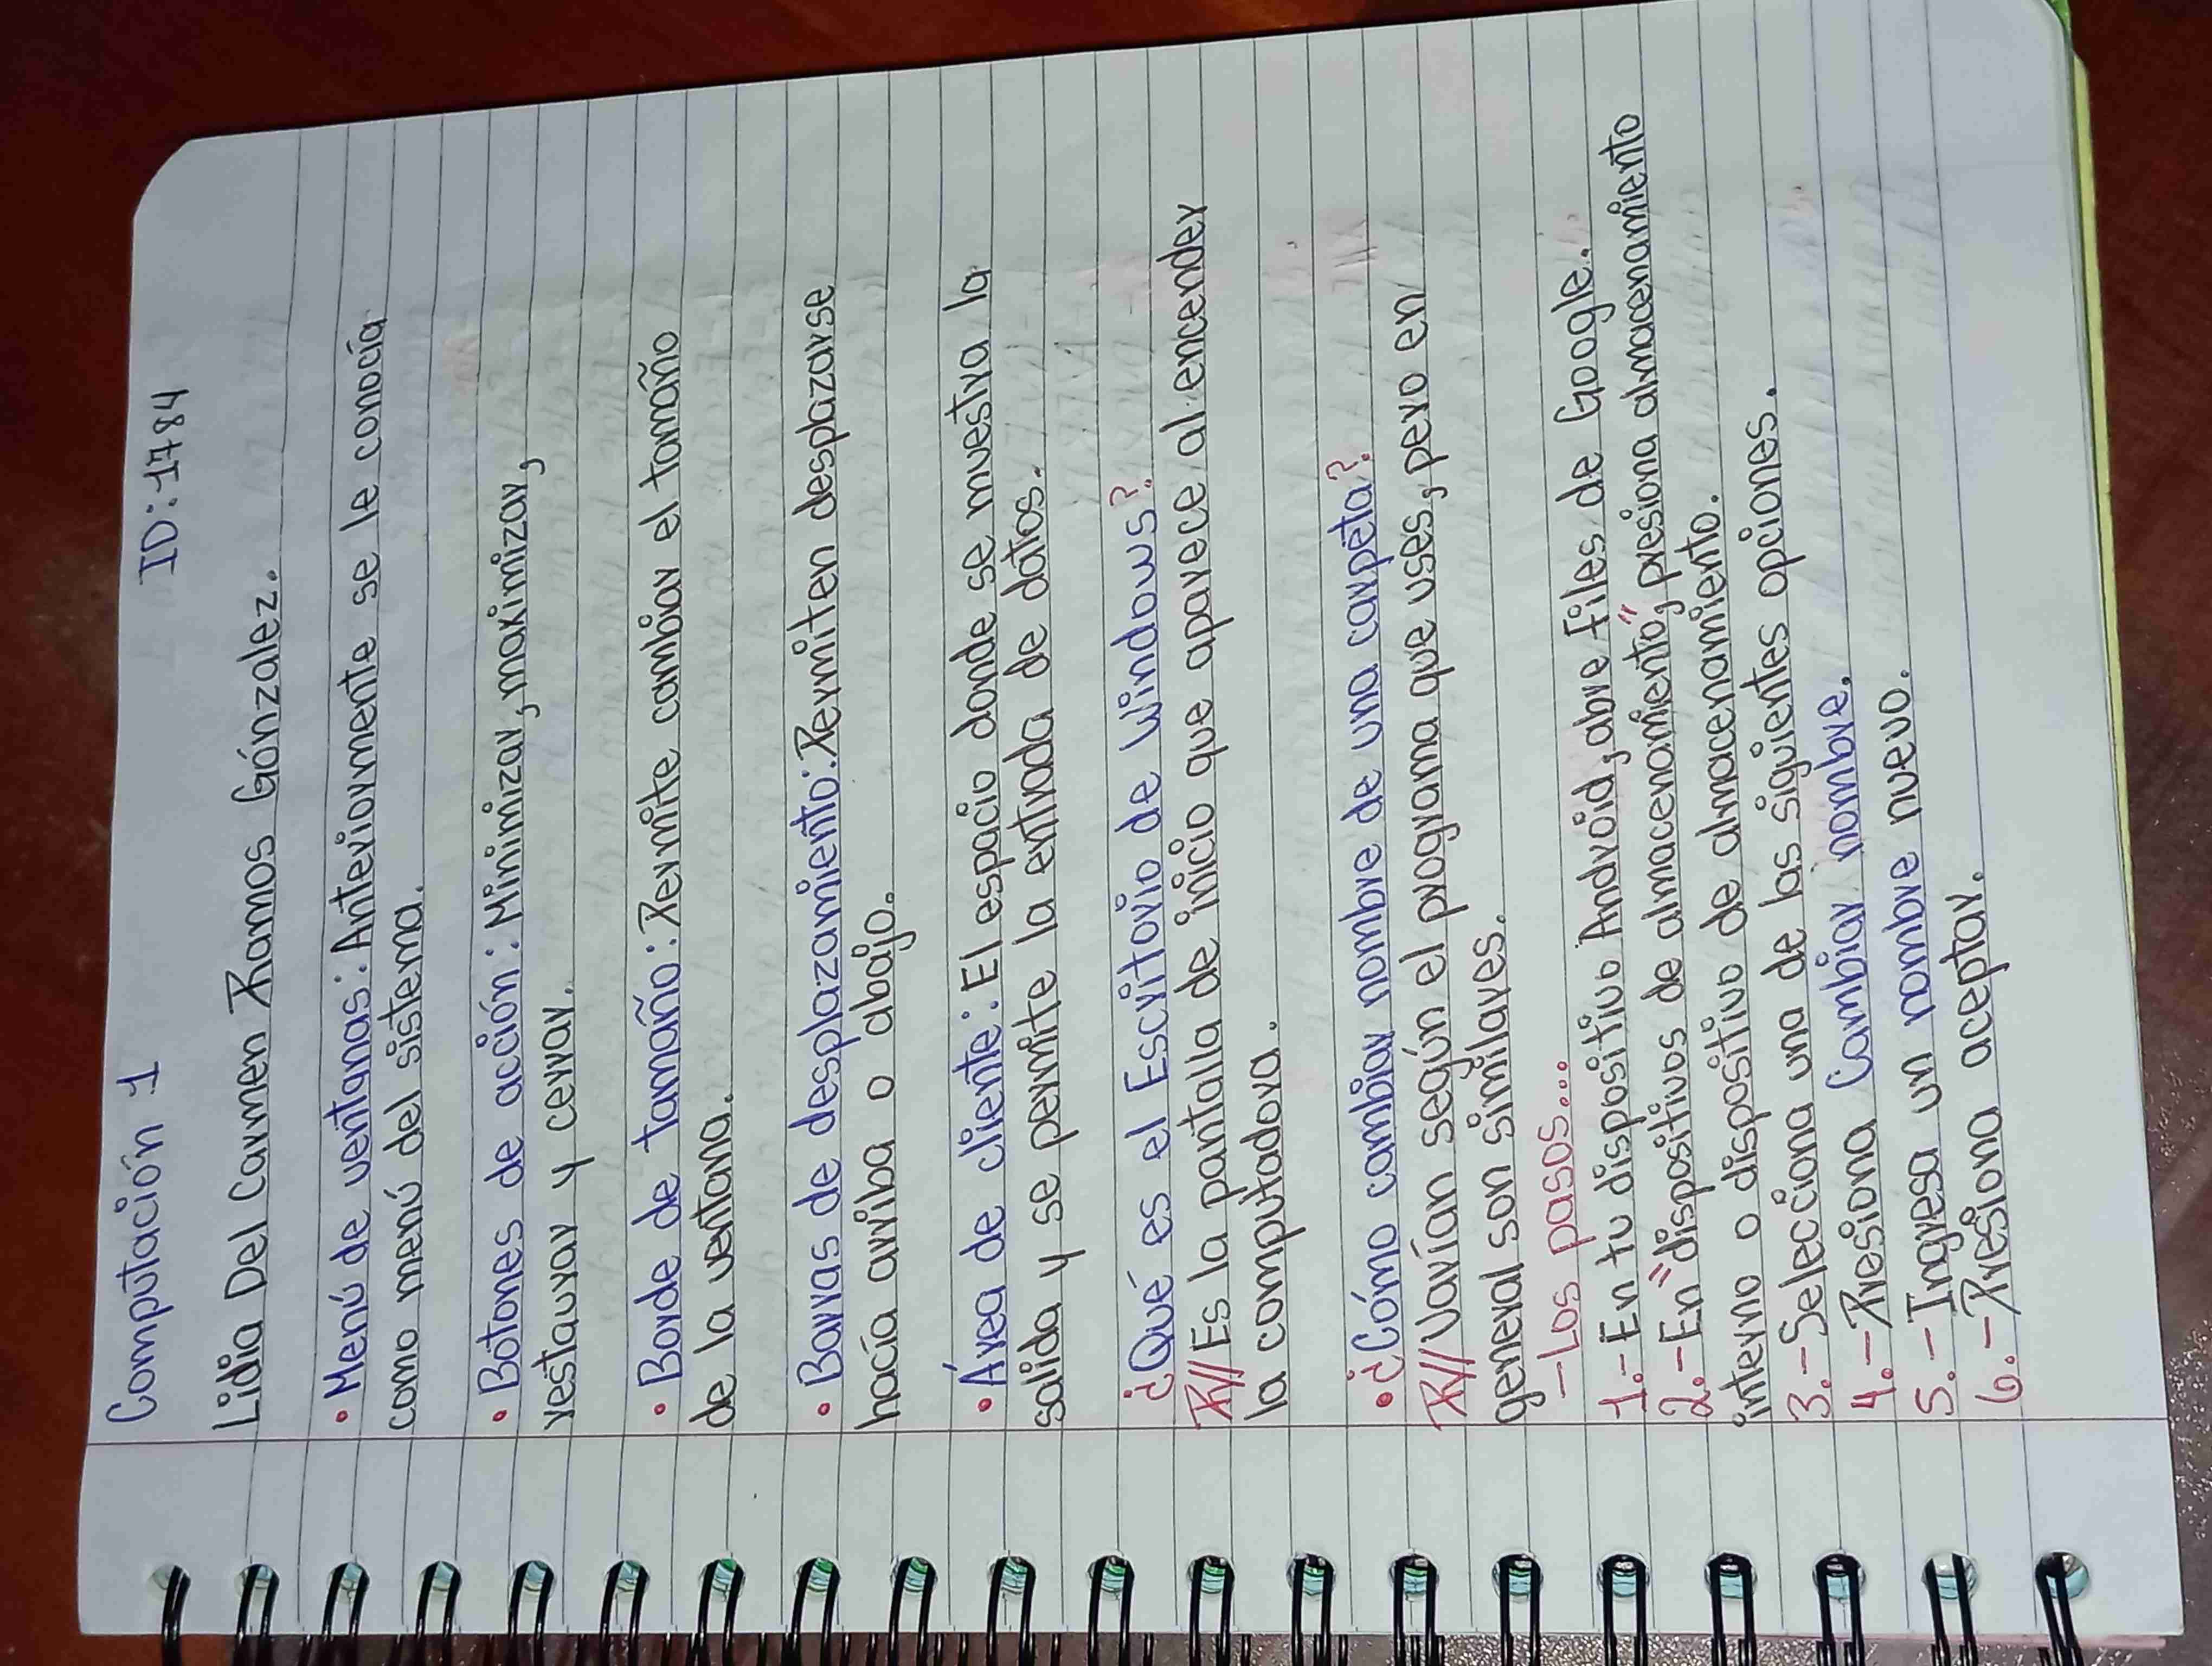 Computación 1 ID: 1784
Lidia Del Carmen Ramos Gónzalez.
• Menú de ventanas: Anteriormente se le conocía
como menú del sistema.
• Botones de acción: Minimizar, maximizar,
restaurar y cerrar.
• Borde de tamaño: Permite cambiar el tamaño
de la ventana.
• Barras de desplazamiento: Permiten desplazarse
hacía arriba o abajo.
• Área de cliente: El espacio donde se muestra la
salida y se permite la entrada de datos.
¿Qué es el Escritorio de Windows?
R// Es la pantalla de inicio que aparece al encender
la computadora.
• ¿Cómo cambiar nombre de una carpeta?
R// Varían según el programa que uses, pero en
general son similares.
- Los pasos...
1.- En tu dispositivo Android, abre files de Google.
2.- En "dispositivos de almacenamiento", presiona almacenamiento
interno o dispositivo de almacenamiento.
3.- Selecciona una de las siguientes opciones.
4.- Presiona Cambiar nombre.
5.- Ingresa un nombre nuevo.
6.- Presiona aceptar.